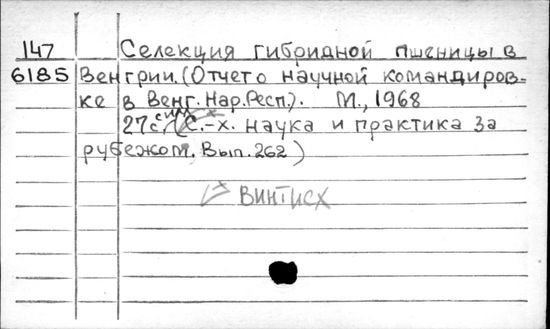 147 Селекция гибридной пшеницы в
6185 Венгрии. (Отчет о научной командиров-
ке в Венг. Нар. Респ.). М., 1968
27с. (С.-х. наука и практика за
рубежом. Вып. 262)
ВИНТИСХ